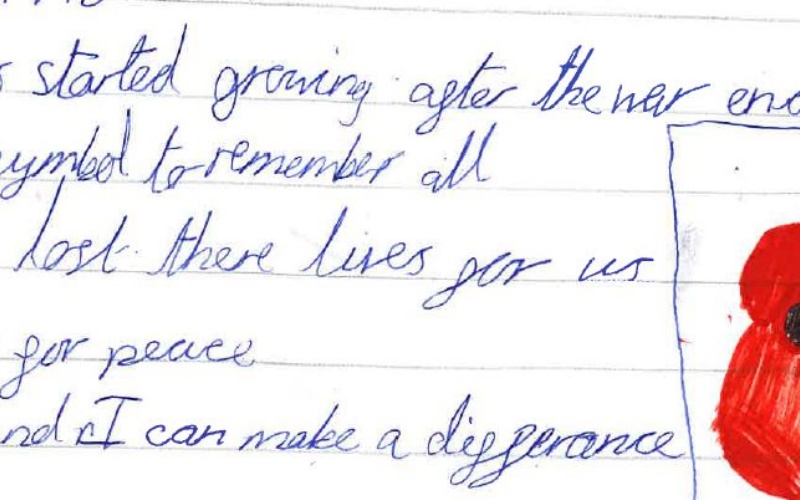 started growing after the war end
symbol to remember all
lost there lives for us
for peace
nd I can make a differance